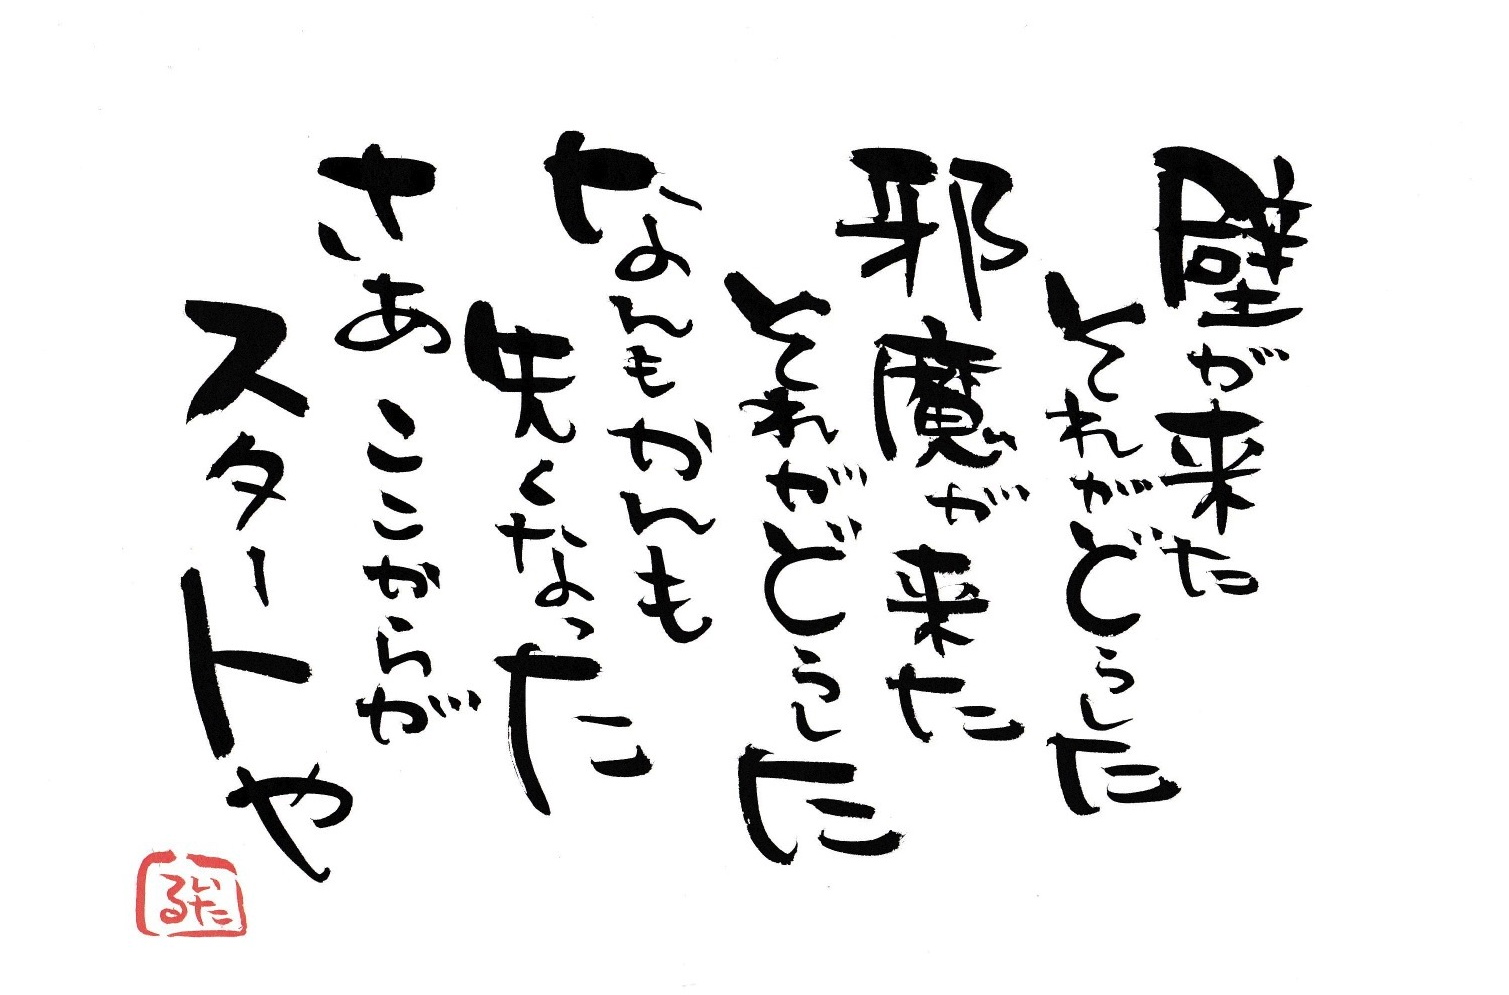 壁が来た
それがどうした
邪魔が来た
それがどうした
なんもかんも
失くなった
さあ ここからが
スタートや
いたる